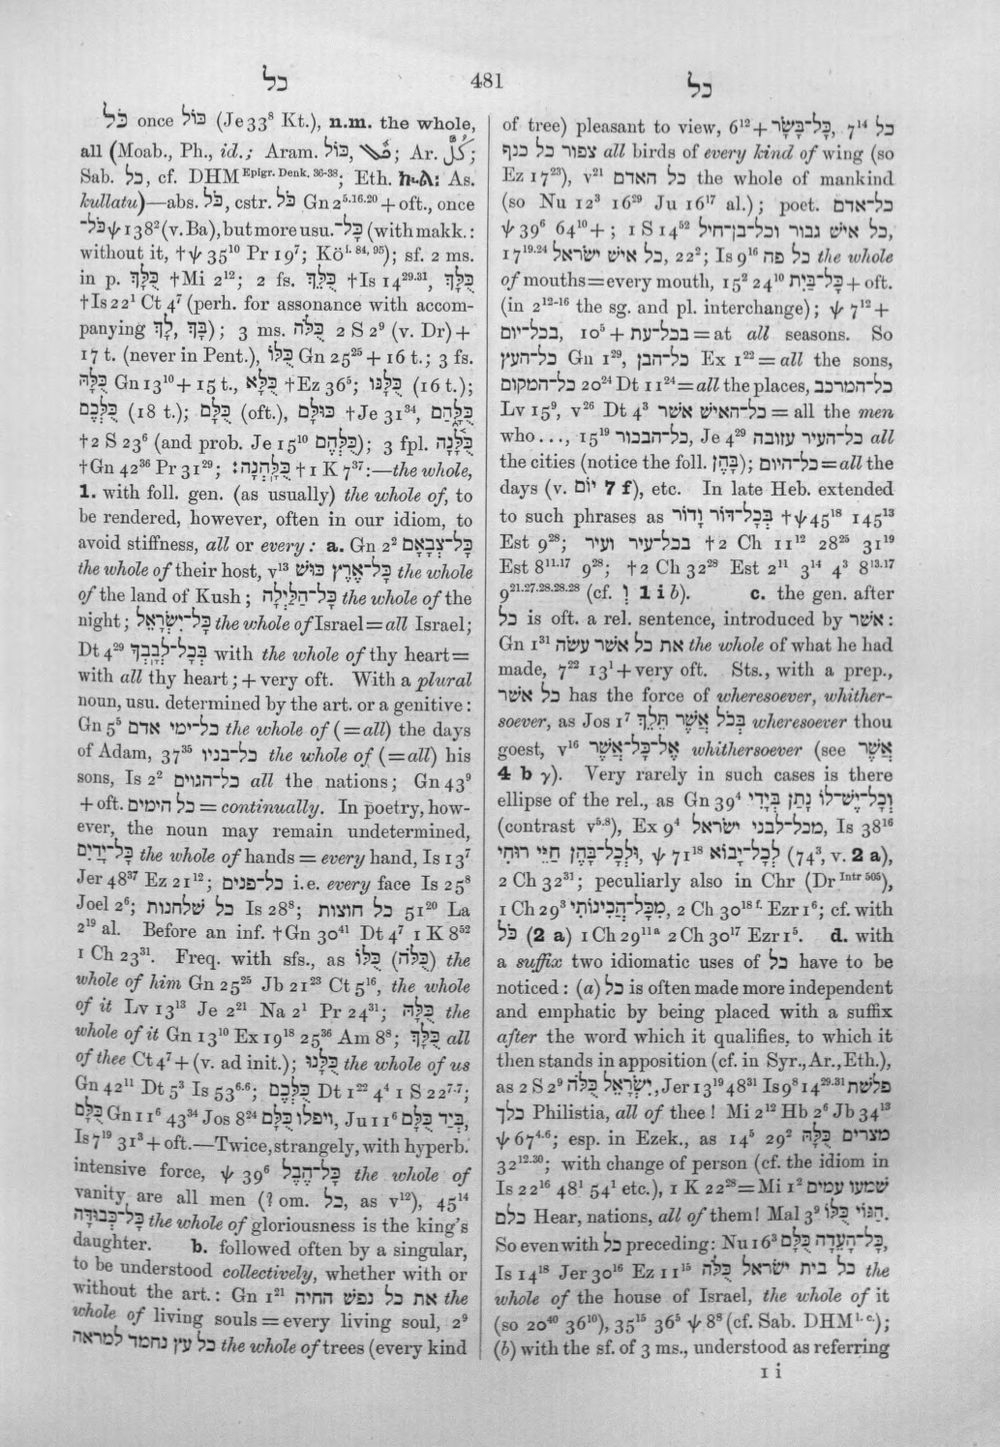 כל 481 כל
כֹּל once כּוֹל (Je 33⁸ Kt.), n.m. the whole,
all (Moab., Ph., id.; Aram. כּוֹל, ; Ar. كُلٌّ;
Sab. כל, cf. DHM Epigr. Denk. 36-38; Eth. ኩል፡ As.
kullatu)—abs. כֹּל, cstr. כֹּל Gn 2⁵·¹⁶·²⁰ + oft., once
כֹּל־ ψ 138² (v. Ba), but more usu. כָּל־ (with makk.:
without it, †ψ 35¹⁰ Pr 19⁷; Köⁱ· ⁸⁴, ⁹⁵); sf. 2 ms.
in p. כֻּלָּךְ †Mi 2¹²; 2 fs. כֻּלָּךְ †Is 14²⁹·³¹, כֻּלֵּךְ
†Is 22¹ Ct 4⁷ (perh. for assonance with accom-
panying לָךְ, בָּךְ); 3 ms. כֻּלֹּה 2 S 2⁹ (v. Dr) +
17 t. (never in Pent.), כֻּלּוֹ Gn 25²⁵ + 16 t.; 3 fs.
כֻּלָּהּ Gn 13¹⁰ + 15 t., כֻּלָּא †Ez 36⁵; כֻּלָּנוּ (16 t.);
כֻּלְּכֶם (18 t.); כֻּלָּם (oft.), כּוּלָּם †Je 31³⁴, כֻּלָּהַם
†2 S 23⁶ (and prob. Je 15¹⁰ כֻּלְּהֶם); 3 fpl. כֻּלָּנָה
†Gn 42³⁶ Pr 31²⁹; כֻּלָּהְנָה׃ †1 K 7³⁷:—the whole,
1. with foll. gen. (as usually) the whole of, to
be rendered, however, often in our idiom, to
avoid stiffness, all or every: a. Gn 2² כָּל־צְבָאָם
the whole of their host, v¹³ כָּל־אֶרֶץ כּוּשׁ the whole
of the land of Kush; כָּל־הַלַּיְלָה the whole of the
night; כָּל־יִשְׂרָאֵל the whole of Israel = all Israel;
Dt 4²⁹ בְּכָל־לְבָבְךָ with the whole of thy heart =
with all thy heart; + very oft. With a plural
noun, usu. determined by the art. or a genitive:
Gn 5⁵ כל־ימי אדם the whole of (= all) the days
of Adam, 37³⁵ כל־בניו the whole of (= all) his
sons, Is 2² כל־הגוים all the nations; Gn 43⁹
+ oft. כל הימים = continually. In poetry, how-
ever, the noun may remain undetermined,
כָּל־יָדַיִם the whole of hands = every hand, Is 13⁷
Jer 48³⁷ Ez 21¹²; כל־פנים i.e. every face Is 25⁸
Joel 2⁶; כל שלחנות Is 28⁸; כל חוצות 51²⁰ La
2¹⁹ al. Before an inf. †Gn 30⁴¹ Dt 4⁷ 1 K 8⁵²
1 Ch 23³¹. Freq. with sfs., as כֻּלּוֹ (כֻּלֹּה) the
whole of him Gn 25²⁵ Jb 21²³ Ct 5¹⁶, the whole
of it Lv 13¹³ Je 2²¹ Na 2¹ Pr 24³¹; כֻּלָּהּ the
whole of it Gn 13¹⁰ Ex 19¹⁸ 25³⁶ Am 8⁸; כֻּלָּךְ all
of thee Ct 4⁷ + (v. ad init.); כֻּלָּנוּ the whole of us
Gn 42¹¹ Dt 5³ Is 53⁶·⁶; כֻּלְּכֶם Dt 1²² 4⁴ 1 S 22⁷·⁷;
כֻּלָּם Gn 11⁶ 43³⁴ Jos 8²⁴ ויפלו כֻלָּם, Ju 11⁶ בְּיַד כֻּלָּם,
Is 7¹⁹ 31³ + oft.—Twice, strangely, with hyperb.
intensive force, ψ 39⁶ כָּל־הֶבֶל the whole of
vanity are all men (? om. כל, as v¹²), 45¹⁴
כָּל־כְּבוּדָּה the whole of gloriousness is the king's
daughter. b. followed often by a singular,
to be understood collectively, whether with or
without the art.: Gn 1²¹ את כל נפש החיה the
whole of living souls = every living soul, 2⁹
כל עץ נחמד למראה the whole of trees (every kind
of tree) pleasant to view, 6¹² + כָּל־בָּשָׂר, 7¹⁴ כל
צפור כל כנף all birds of every kind of wing (so
Ez 17²³), v²¹ כל האדם the whole of mankind
(so Nu 12³ 16²⁹ Ju 16¹⁷ al.); poet. כל־אדם
ψ 39⁶ 64¹⁰ +; 1 S 14⁵² כל איש גבור וכל־בן־חיל,
17¹⁹·²⁴ כל איש ישראל, 22²; Is 9¹⁶ כל פה the whole
of mouths = every mouth, 15² 24¹⁰ כָּל־בַּיִת + oft.
(in 2¹²⁻¹⁶ the sg. and pl. interchange); ψ 7¹² +
בכל־יום, 10⁵ + בכל־עת = at all seasons. So
כל־העץ Gn 1²⁹, כל־הבן Ex 1²² = all the sons,
כל־המקום 20²⁴ Dt 11²⁴ = all the places, כל־המרכב
Lv 15⁹, v²⁶ Dt 4³ כל־האיש אשר = all the men
who..., 15¹⁹ כל־הבכור, Je 4²⁹ כל־העיר עזובה all
the cities (notice the foll. בָּהֶן); כל־היום = all the
days (v. יוֹם 7 f), etc. In late Heb. extended
to such phrases as בְּכָל־דּוֹר וָדוֹר †ψ 45¹⁸ 145¹³
Est 9²⁸; בכל־עיר ועיר †2 Ch 11¹² 28²⁵ 31¹⁹
Est 8¹¹·¹⁷ 9²⁸; †2 Ch 32²⁸ Est 2¹¹ 3¹⁴ 4³ 8¹³·¹⁷
9²¹·²⁷·²⁸·²⁸·²⁸ (cf. וְ 1 i b). c. the gen. after
כל is oft. a rel. sentence, introduced by אשר:
Gn 1³¹ את כל אשר עשה the whole of what he had
made, 7²² 13¹ + very oft. Sts., with a prep.,
כל אשר has the force of wheresoever, whither-
soever, as Jos 1⁷ בְּכֹל אֲשֶׁר תֵּלֵךְ wheresoever thou
goest, v¹⁶ אֶל־כָּל־אֲשֶׁר whithersoever (see אֲשֶׁר
4 b γ). Very rarely in such cases is there
ellipse of the rel., as Gn 39⁴ וְכָל־יֶשׁ־לוֹ נָתַן בְּיָדִי
(contrast v⁵·⁸), Ex 9⁴ מכל־לבני ישראל, Is 38¹⁶
וּלְכָל־בָּהֶן חַיֵּי רוּחִי, ψ 71¹⁸ לְכָל־יָבוֹא (74³, v. 2 a),
2 Ch 32³¹; peculiarly also in Chr (Dr Intr 505),
1 Ch 29³ מִכָּל־הֲכִינוֹתִי, 2 Ch 30¹⁸ ᶠ· Ezr 1⁶; cf. with
כֹּל (2 a) 1 Ch 29¹¹ᵃ 2 Ch 30¹⁷ Ezr 1⁵. d. with
a suffix two idiomatic uses of כל have to be
noticed: (a) כל is often made more independent
and emphatic by being placed with a suffix
after the word which it qualifies, to which it
then stands in apposition (cf. in Syr., Ar., Eth.),
as 2 S 2⁹ יִשְׂרָאֵל כֻּלֹּה, Jer 13¹⁹ 48³¹ Is 9⁸ 14²⁹·³¹ פלשת
כלך Philistia, all of thee! Mi 2¹² Hb 2⁶ Jb 34¹³
ψ 67⁴·⁶; esp. in Ezek., as 14⁵ 29² מצרים כֻּלָּהּ
32¹²·³⁰; with change of person (cf. the idiom in
Is 22¹⁶ 48¹ 54¹ etc.), 1 K 22²⁸ = Mi 1² שמעו עמים
כלם Hear, nations, all of them! Mal 3⁹ הַגּוֹי כֻּלּוֹ.
So even with כל preceding: Nu 16³ כָּל־הָעֵדָה כֻּלָּם,
Is 14¹⁸ Jer 30¹⁶ Ez 11¹⁵ כל בית ישראל כֻּלֹּה the
whole of the house of Israel, the whole of it
(so 20⁴⁰ 36¹⁰), 35¹⁵ 36⁵ ψ 8⁸ (cf. Sab. DHM l. c.);
(b) with the sf. of 3 ms., understood as referring
I i